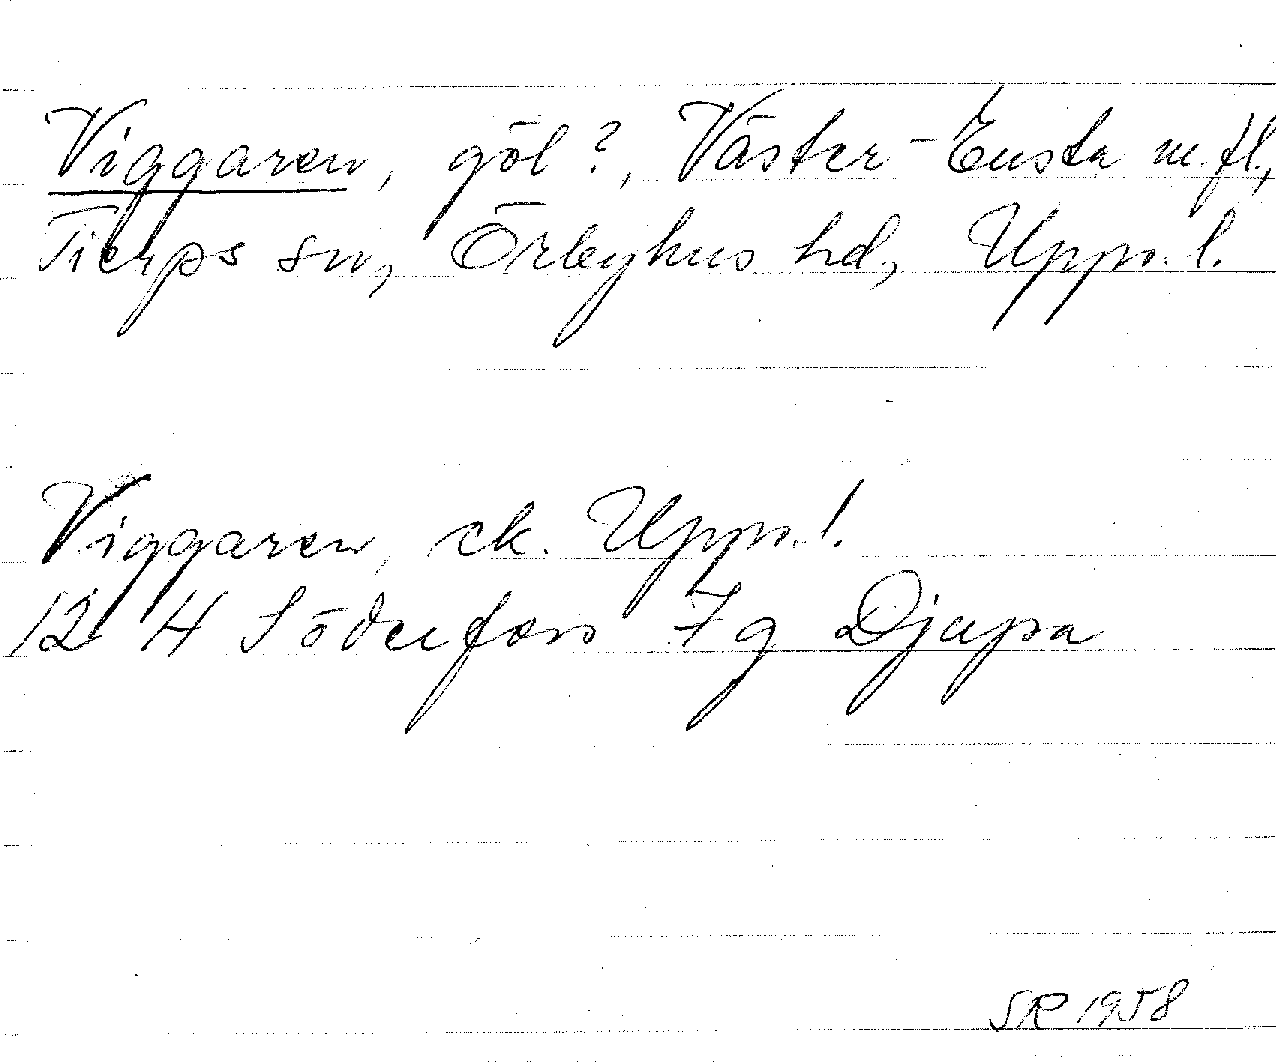 Viggaren, göl?, Väster-Ensta m.fl.,
Tierps sn, Örbyhus hd, Upps.l.
Viggaren, ek. Upps.l.
12 H Söderfors 7 g Djupa
SR 1958